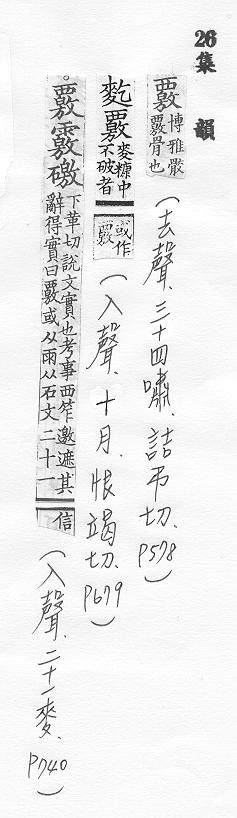 26
集韻
覈 博雅骰覈骨也 (去聲、三十四嘯、詰弔切、P578)
麧覈 麥糠中不破者 或作覈 (入聲、十月、恨竭切、P679)
。覈𩆓礉 下革切說文實也考事西笮邀遮其辭得實曰覈或从雨从石文二十一 信 (入聲、二十一麥、P740)